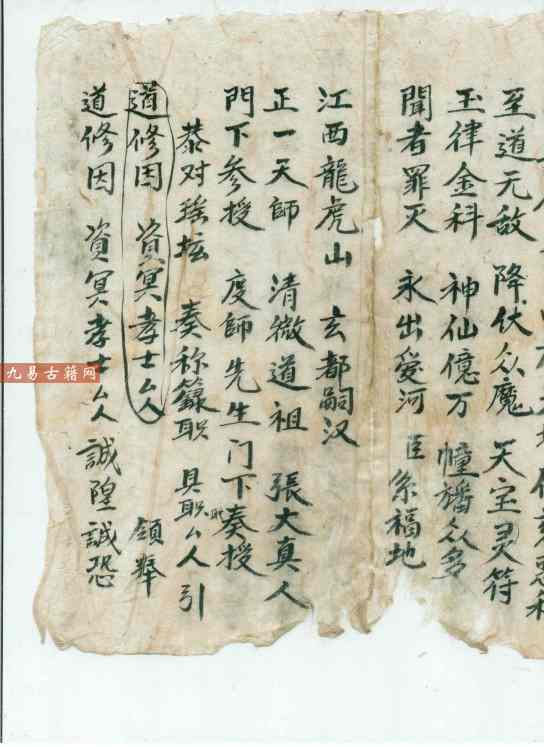 至道无敌 降伏众魔 天宝灵符
玉律金科 神仙億万 幢旛众多
聞者罪灭 永出爱河 臣系福地
江西龍虎山 玄都嗣汉
正一天師 清微道祖 張大真人
門下参授 度師先生门下奏授
恭对瑤坛 奏称籙职 具职厶人引
道修因 資冥孝士厶人 領奉
道修因 資冥孝士厶人 誠隍誠恐
九易古籍网